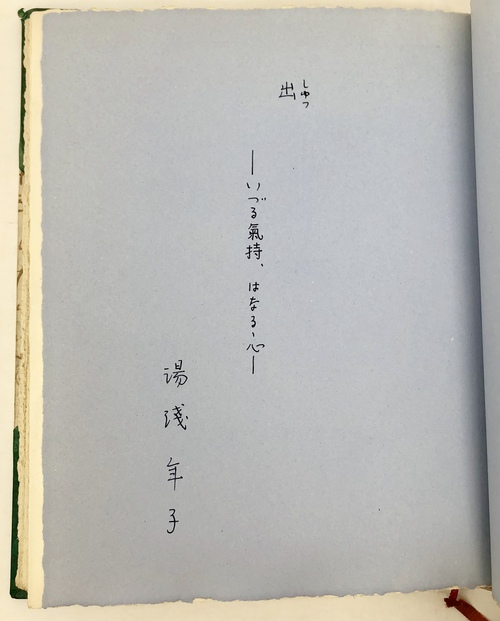 出
しゅつ
―いづる氣持、はなるゝ心―
湯淺年子